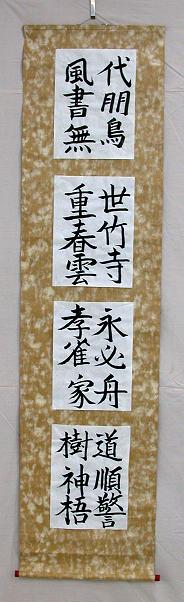 代朋鳥
風書無
世竹寺
重春雲
永必舟
孝雀家
道順警
樹神梧